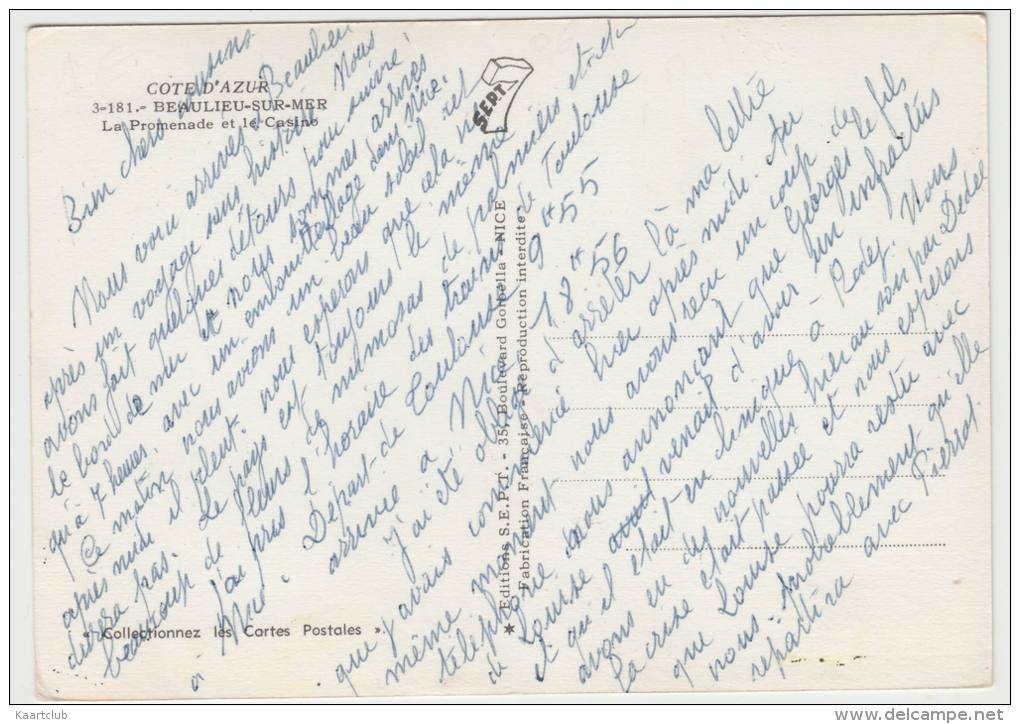 COTE D'AZUR
3-181.- BEAULIEU-SUR-MER
La Promenade et le Casino
SEPT
Bien chers cousins
Nous voici arrivés à Beaulieu
après un voyage sans histoire. Nous
avons fait quelques détours pour suivre
le bord de mer et nous sommes arrivés
qu'à 7 heures, avec un embouteillage dans Nice.
Ce matin nous avions un beau soleil, cet
après midi il nous espérons que cela ne
durera pas. Le pays est toujours le même
beaucoup de fleurs de mimosas de palmiers etc
J'ai pris l'horaire des trains de Toulouse
à Nice. Départ de Toulouse 9H55
arrivée à Nice 18H56
J'ai été obligé d'arrêter là ma lettre
que j'avais commencé hier après midi. Au
même moment nous avons reçu un coup de
téléphone nous annonçant que Georges le fils
de Louise venait d'avoir un infractus
et qu'il était en clinique à Rodez. Nous
avons eu des nouvelles hier au soir par Dédée
la crise était passée et nous espérons
que Louise pourra rester avec
nous. Probablement qu'elle
repartira avec Pierrot
Editions S.E.P.T. - 35, Boulevard Gorbella - NICE
Fabrication Française - Reproduction interdite
« Collectionnez les Cartes Postales ».
Kaartclub
www.delcampe.net